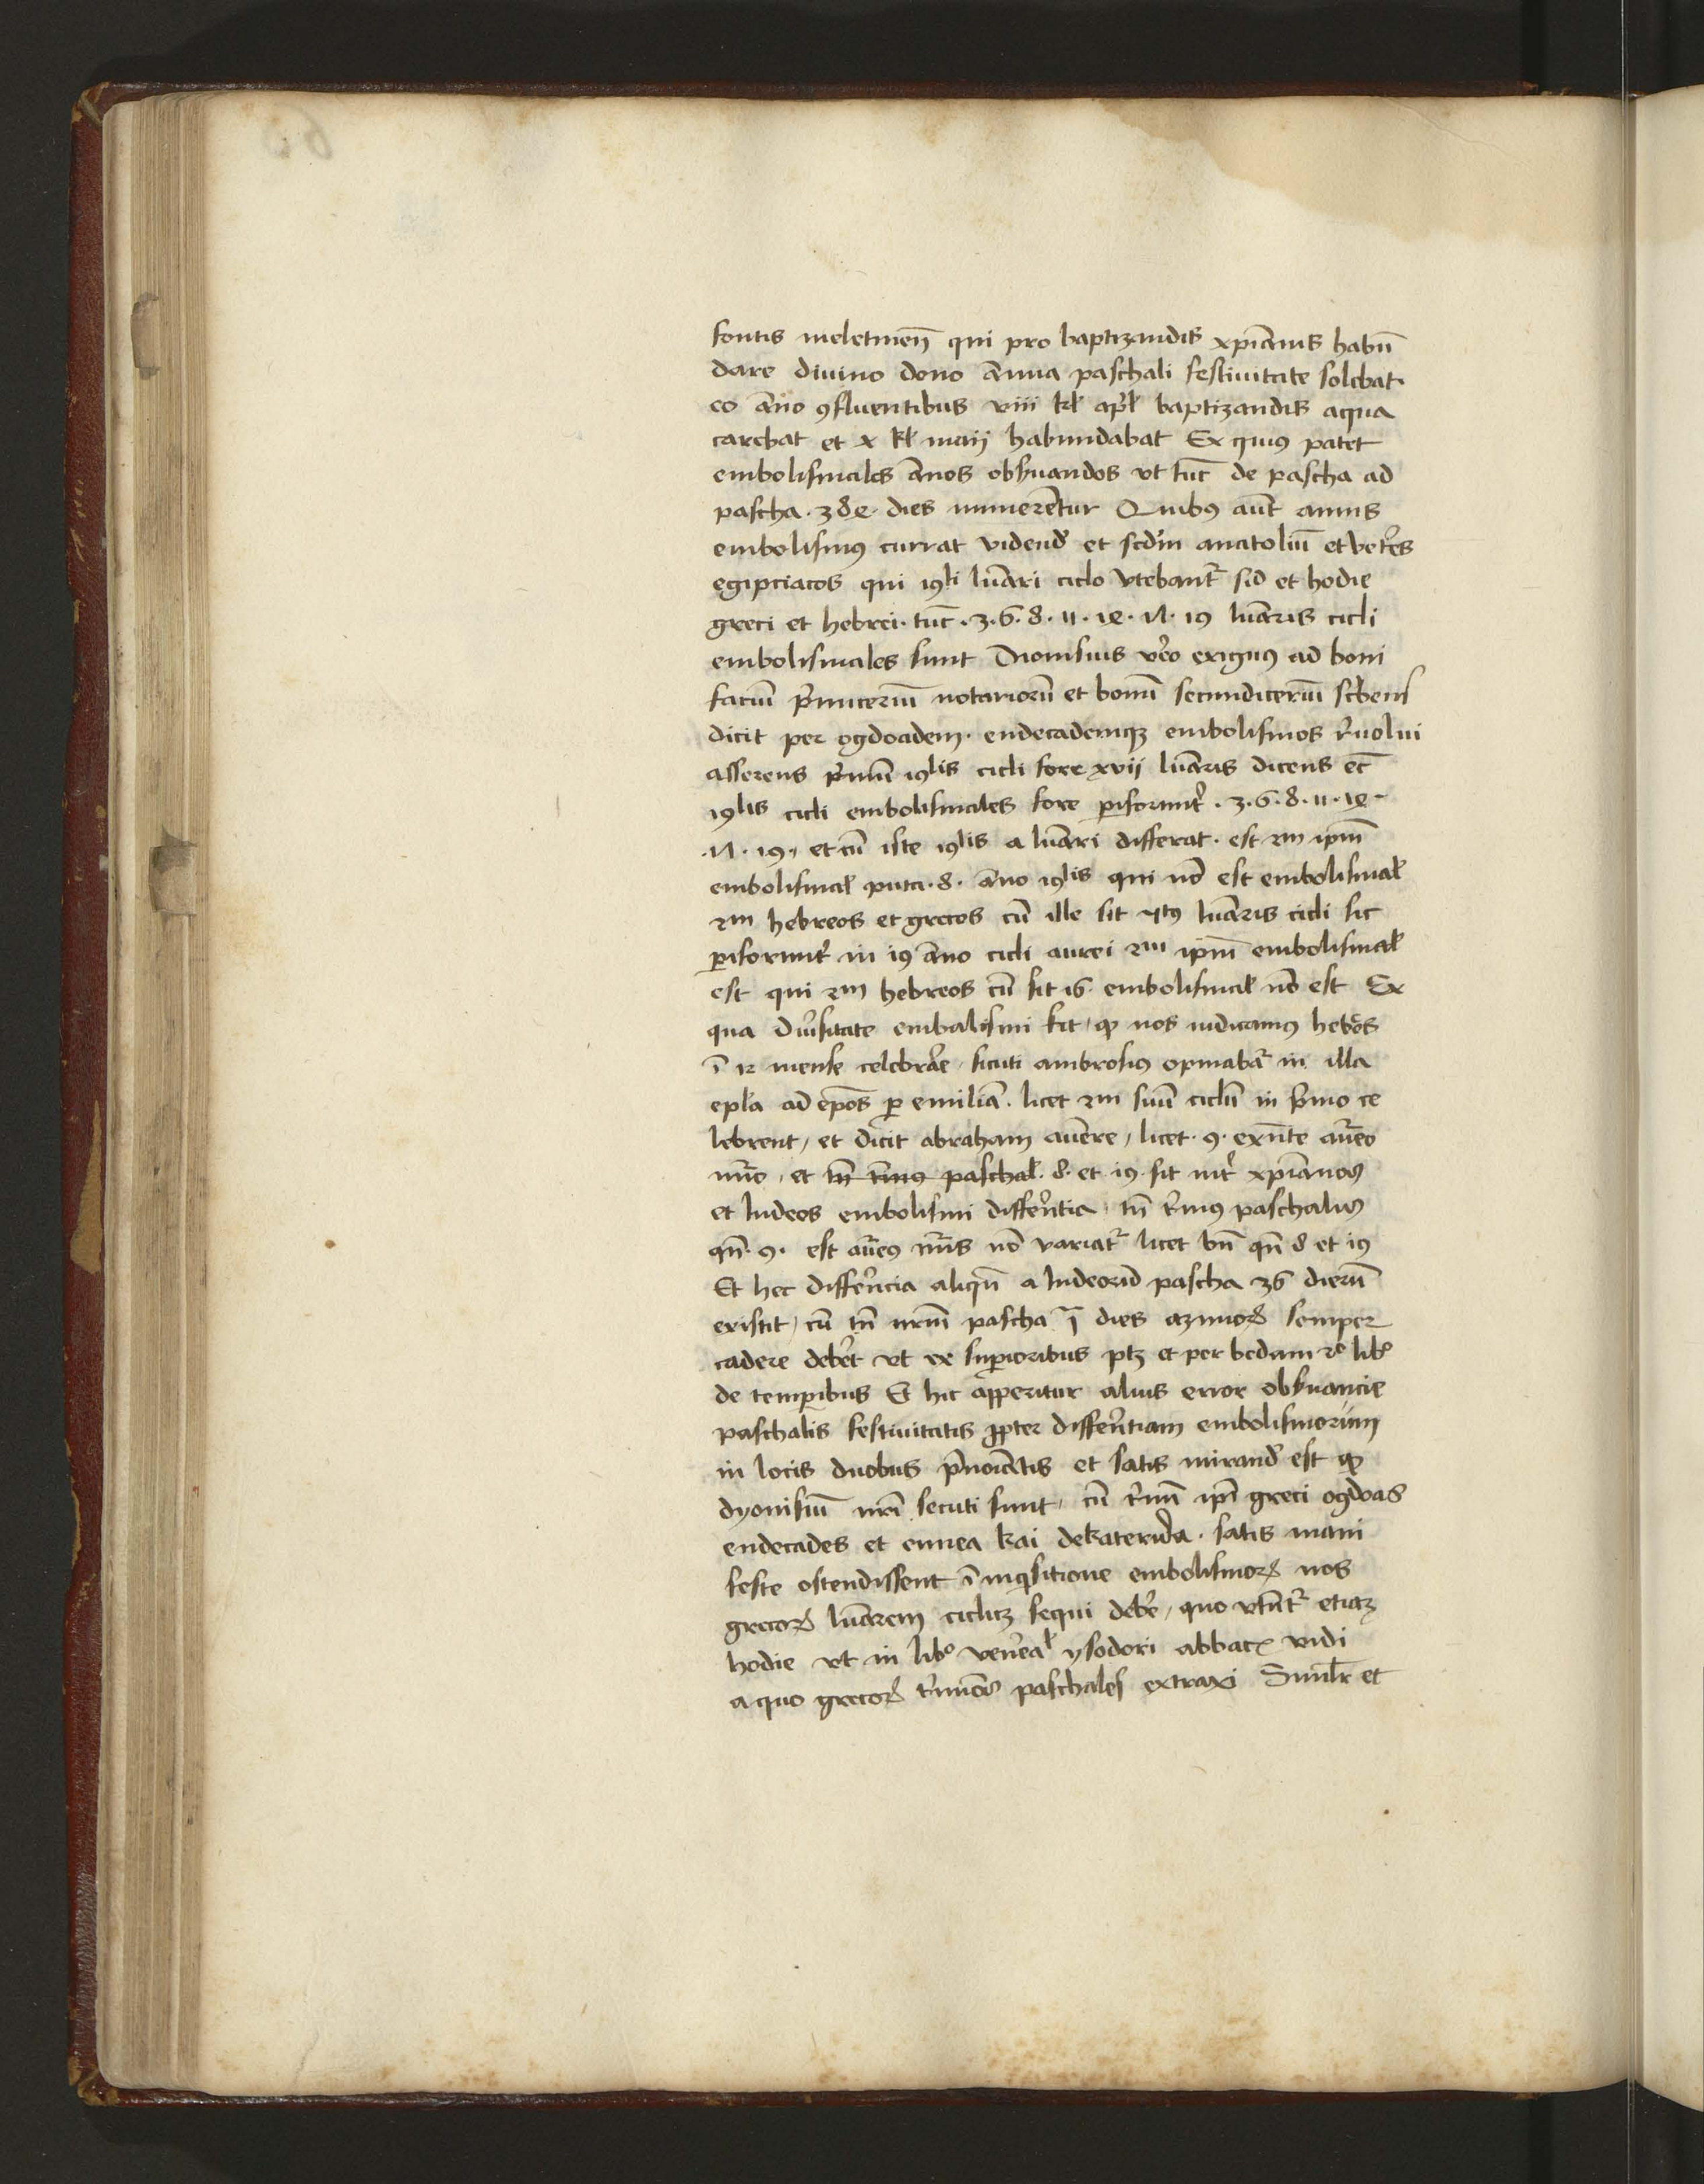 fontis meletinen̄ qui pro baptizandis xp̄ianis habū
dare divino dono annua paschali festiuitate solebat·
eo āno ꝯfluentibus viii kl̄ apl̄ baptizandis aqua
carebat et x kl̄ maij habundabat Ex quis patet
embolismales ānos obs̄uandos vt tūc de pascha ad
pascha · 384 · dies numerētur Quibꝰ aūt annis
embolismꝰ currat videnđ et scđm anatoliū et vet̄es
egipciacos qui 19li lūari ciclo vtebant̄ sic et hodie
greci et hebrei · tūc · 3 · 6 · 8 · 11 · 14 · 17 · 19 lūaris cicli
embolismales sunt Dionisius v̄o exiguꝰ ad boni
faciū p̄micerium notariorū et bonū secundiceriū sc̄bens
dicit per ogdoadem · endecademqꝫ embolismos r̄uolui
asserens p̄mū 19lis cicli fore xvij lūaris dicens ec̄
19lis cicli embolismales fore ꝑiformit̄ · 3 · 6 · 8 · 11 · 14 ·
· 17 · 19 · et cū iste 19lis a lūari differat · est 2m ip̄m
embolismal̄ puta · 8 · āno 19lis qui nō est embolismal̄
2m hebreos et grecos cū ille sit 5tꝰ lūaris cicli sic
ꝑiformit̄ in 19 āno cicli aurei 2m ip̄m embolismal̄
est qui 2m hebreos cū sit 16 embolismal̄ nō est Ex
qua div̄sitate embalismi fit · qꝫ nos iudicamus heb̄os
ī 12 mense celebrāe · sicuti ambrosiꝰ opinabat̄ in illa
epl̄a ad ep̄os ꝑ emiliā · licet 2m suū ciclū in p̄mo ce
lebrent / et dicit abraham auēre / licet · 9 · exn̄te aūeo
nūo · et tn̄ t̄mus paschal̄ · 8 · et · 19 · sit int̄ xp̄ianos
et Iudeos embolismi diffēntia · tn̄ t̄mus paschalis
qn̄ · 9 · est aūeꝰ nūs nō variat̄ licet bn̄ qn̄ 8 et 19
Et hec diffēncia aliqn̄ a Iudeorū pascha 36 dierū
existit / cū tn̄ nr̄m pascha ī dies azimoꝝ semper
cadere deb̄et vt ex suꝑioribus ptꝫ et per bedam 2o libo
de temꝑibus Et hic apperitur alius error obs̄uancie
paschalis festiuitatis ꝓpter diffēntiam embolismorum
in locis duobus p̄noīatis et satis mirand̄ est qꝫ
dyonisiū nr̄i secuti sunt · cū t̄mī ip̄i greci ogdoas
endecades et ennea kai dekaterida · satis mani
feste ostendissent ī inqͥsitione embolismoꝝ nos
grecoꝝ lūarem ciclū sequi deb̄e / quo vtūt̄ etiaꝫ
hodie vt in libo ven̄eal̄ ysodori abbatꝭ vidi
a quo grecoꝝ t̄minos paschales extraxi Simil̄r et